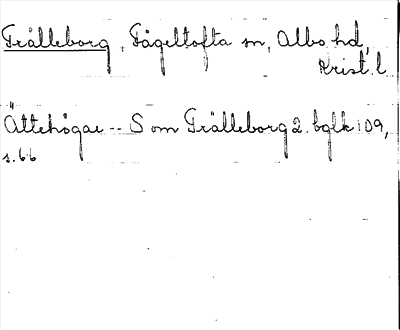 Trälleborg, Fågeltofta sn, Albo hd,
Krist. l.
Ättehögar -- S om Trälleborg 2. bglk 109,
s. 66